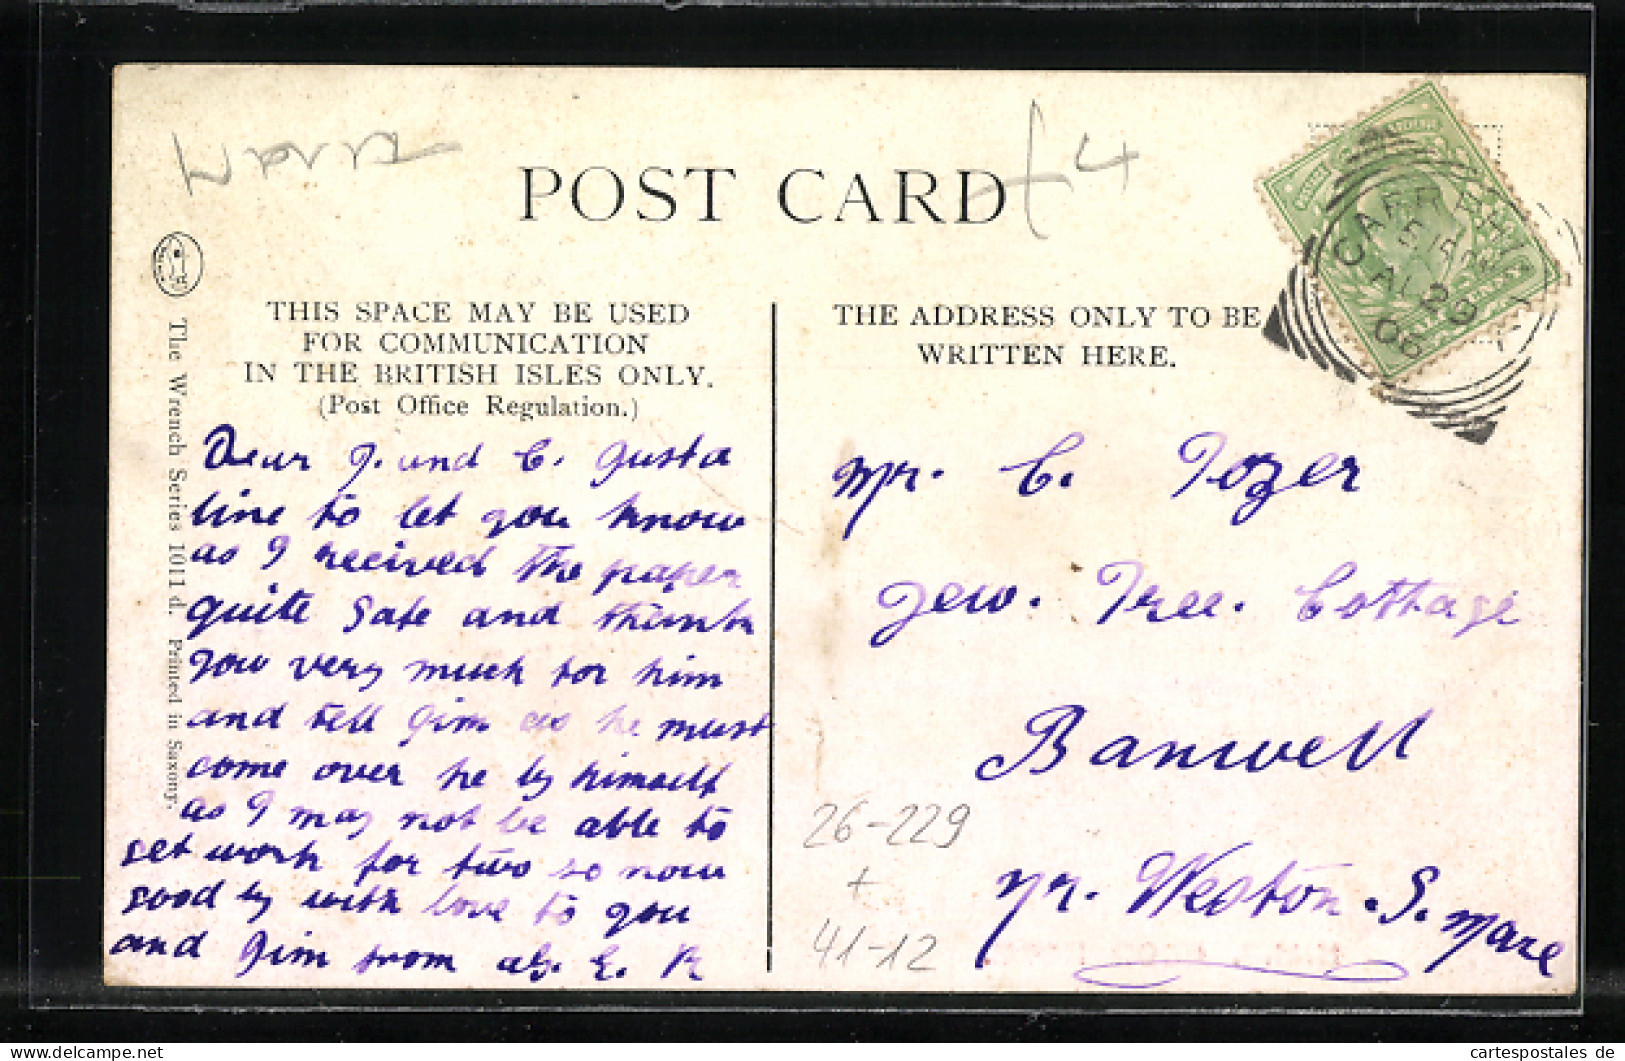 POST CARD
+4
THIS SPACE MAY BE USED
FOR COMMUNICATION
IN THE BRITISH ISLES ONLY.
(Post Office Regulation.)
THE ADDRESS ONLY TO BE
WRITTEN HERE.
CAERPHILLY
5.15 PM
AU 29
06
The Wrench Series 1011 d. Printed in Saxony.
Dear J. and C. Just a
line to let you know
as I received the paper
quite safe and thank
you very much for him
and tell Jim as he must
come over he by himself
as I may not be able to
get work for two so now
good by with love to you
and Jim from E. R
Mr. C. Tozer
Yew. Tree. Cottage
Banwell
Nr. Weston. S. Mare
26-229
+
41-12
cartespostales de